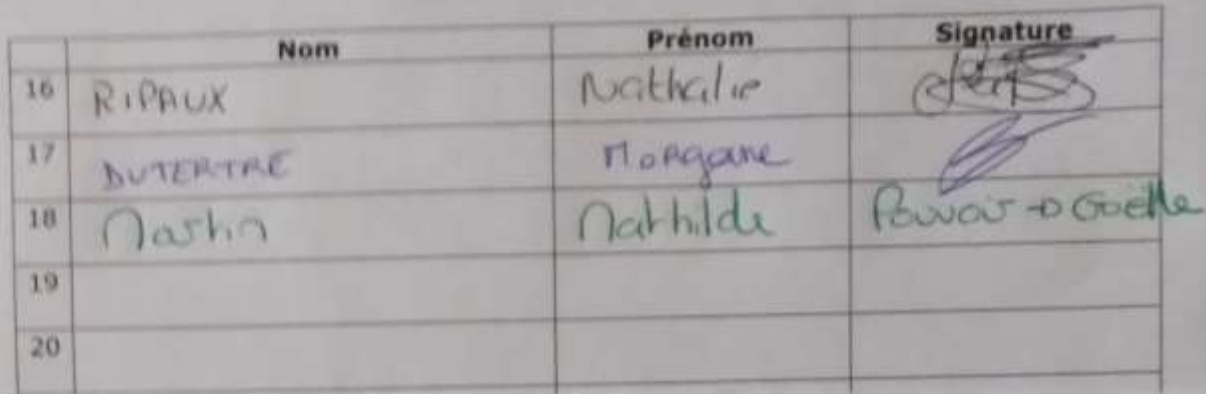 Nom Prénom Signature
16 RIPAUX Nathalie
17 DUTERTRE Morgane
18 Martin Mathilde Pouvoir → Gaëlle
19
20